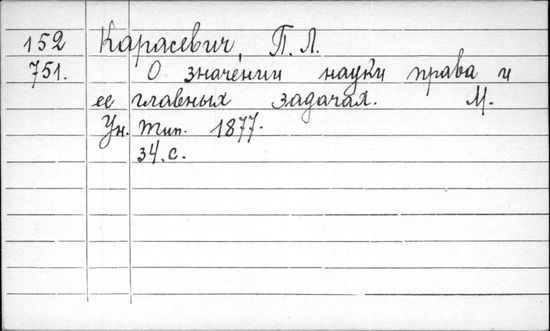 152 Карасевич, П. Л.
751. О значении науки права и
ее главных задачах. М.
Ун. тип. 1877.
34. с.